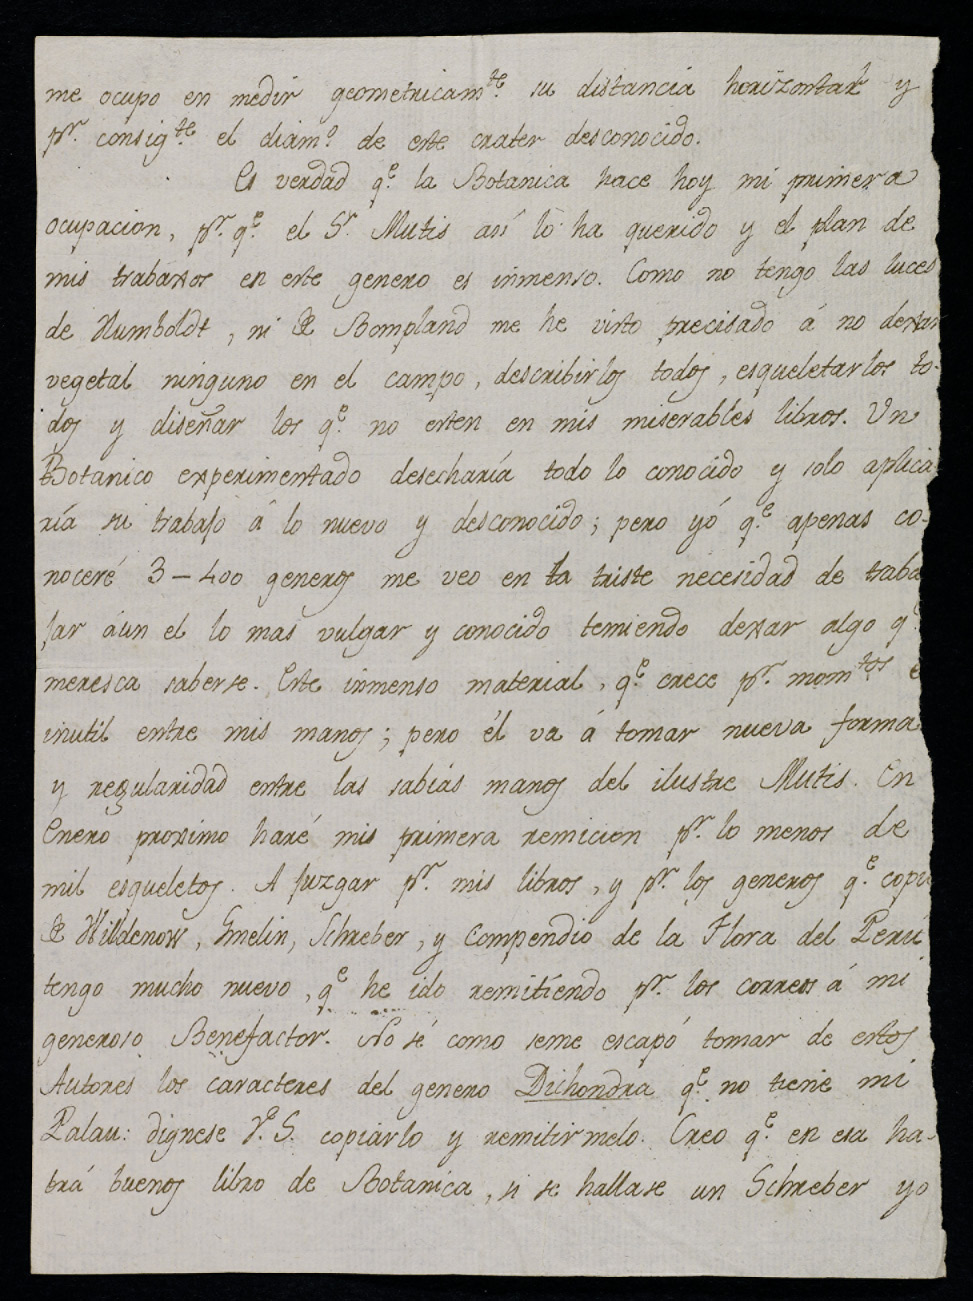 me ocupo en medir geometricam.te su distancia horizontal y
p.r consig.te el diam.o de este crater desconocido.
Es verdad q.e la Botanica hace hoy mi primera
ocupacion, p.r q.e el S.r Mutis asi lo ha querido y el plan de
mis trabaxos en este genero es inmenso. Como no tengo las luces
de Humboldt, ni de Bompland me he visto precisado á no dexar
vegetal ninguno en el campo, describirlos todos, esqueletarlos to-
dos y diseñar los q.e no esten en mis miserables libros. Un
Botanico experimentado desecharía todo lo conocido y solo aplica
ría su trabajo á lo nuevo y desconocido; pero yó q.e apenas co-
noceré 3-400 generos me veo en la triste necesidad de traba
jar áun el lo mas vulgar y conocido temiendo dexar algo q.e
meresca saberse. Este inmenso material, q.e crece p.r mom.tos e
inutil entre mis manos; pero él va á tomar nueva forma
y regularidad entre las sabias manos del ilustre Mutis. En
Enero proximo haré mis primera remicion p.r lo menos de
mil esqueletos. A juzgar p.r mis libros, y p.r los generos q.e copie
de Willdenow, Gmelin, Schreber, y Compendio de la Flora del Perú
tengo mucho nuevo, q.e he ido remitiendo p.r los correos á mi
generoso Benefactor. No sé como seme escapó tomar de estos
Autores los caracteres del genero Dichondra q.e no tiene mi
Palau: dignese V.S. copiarlo y remitirmelo. Creo q.e en esa ha-
brá buenos libro de Botanica, si se hallase un Schreber yo